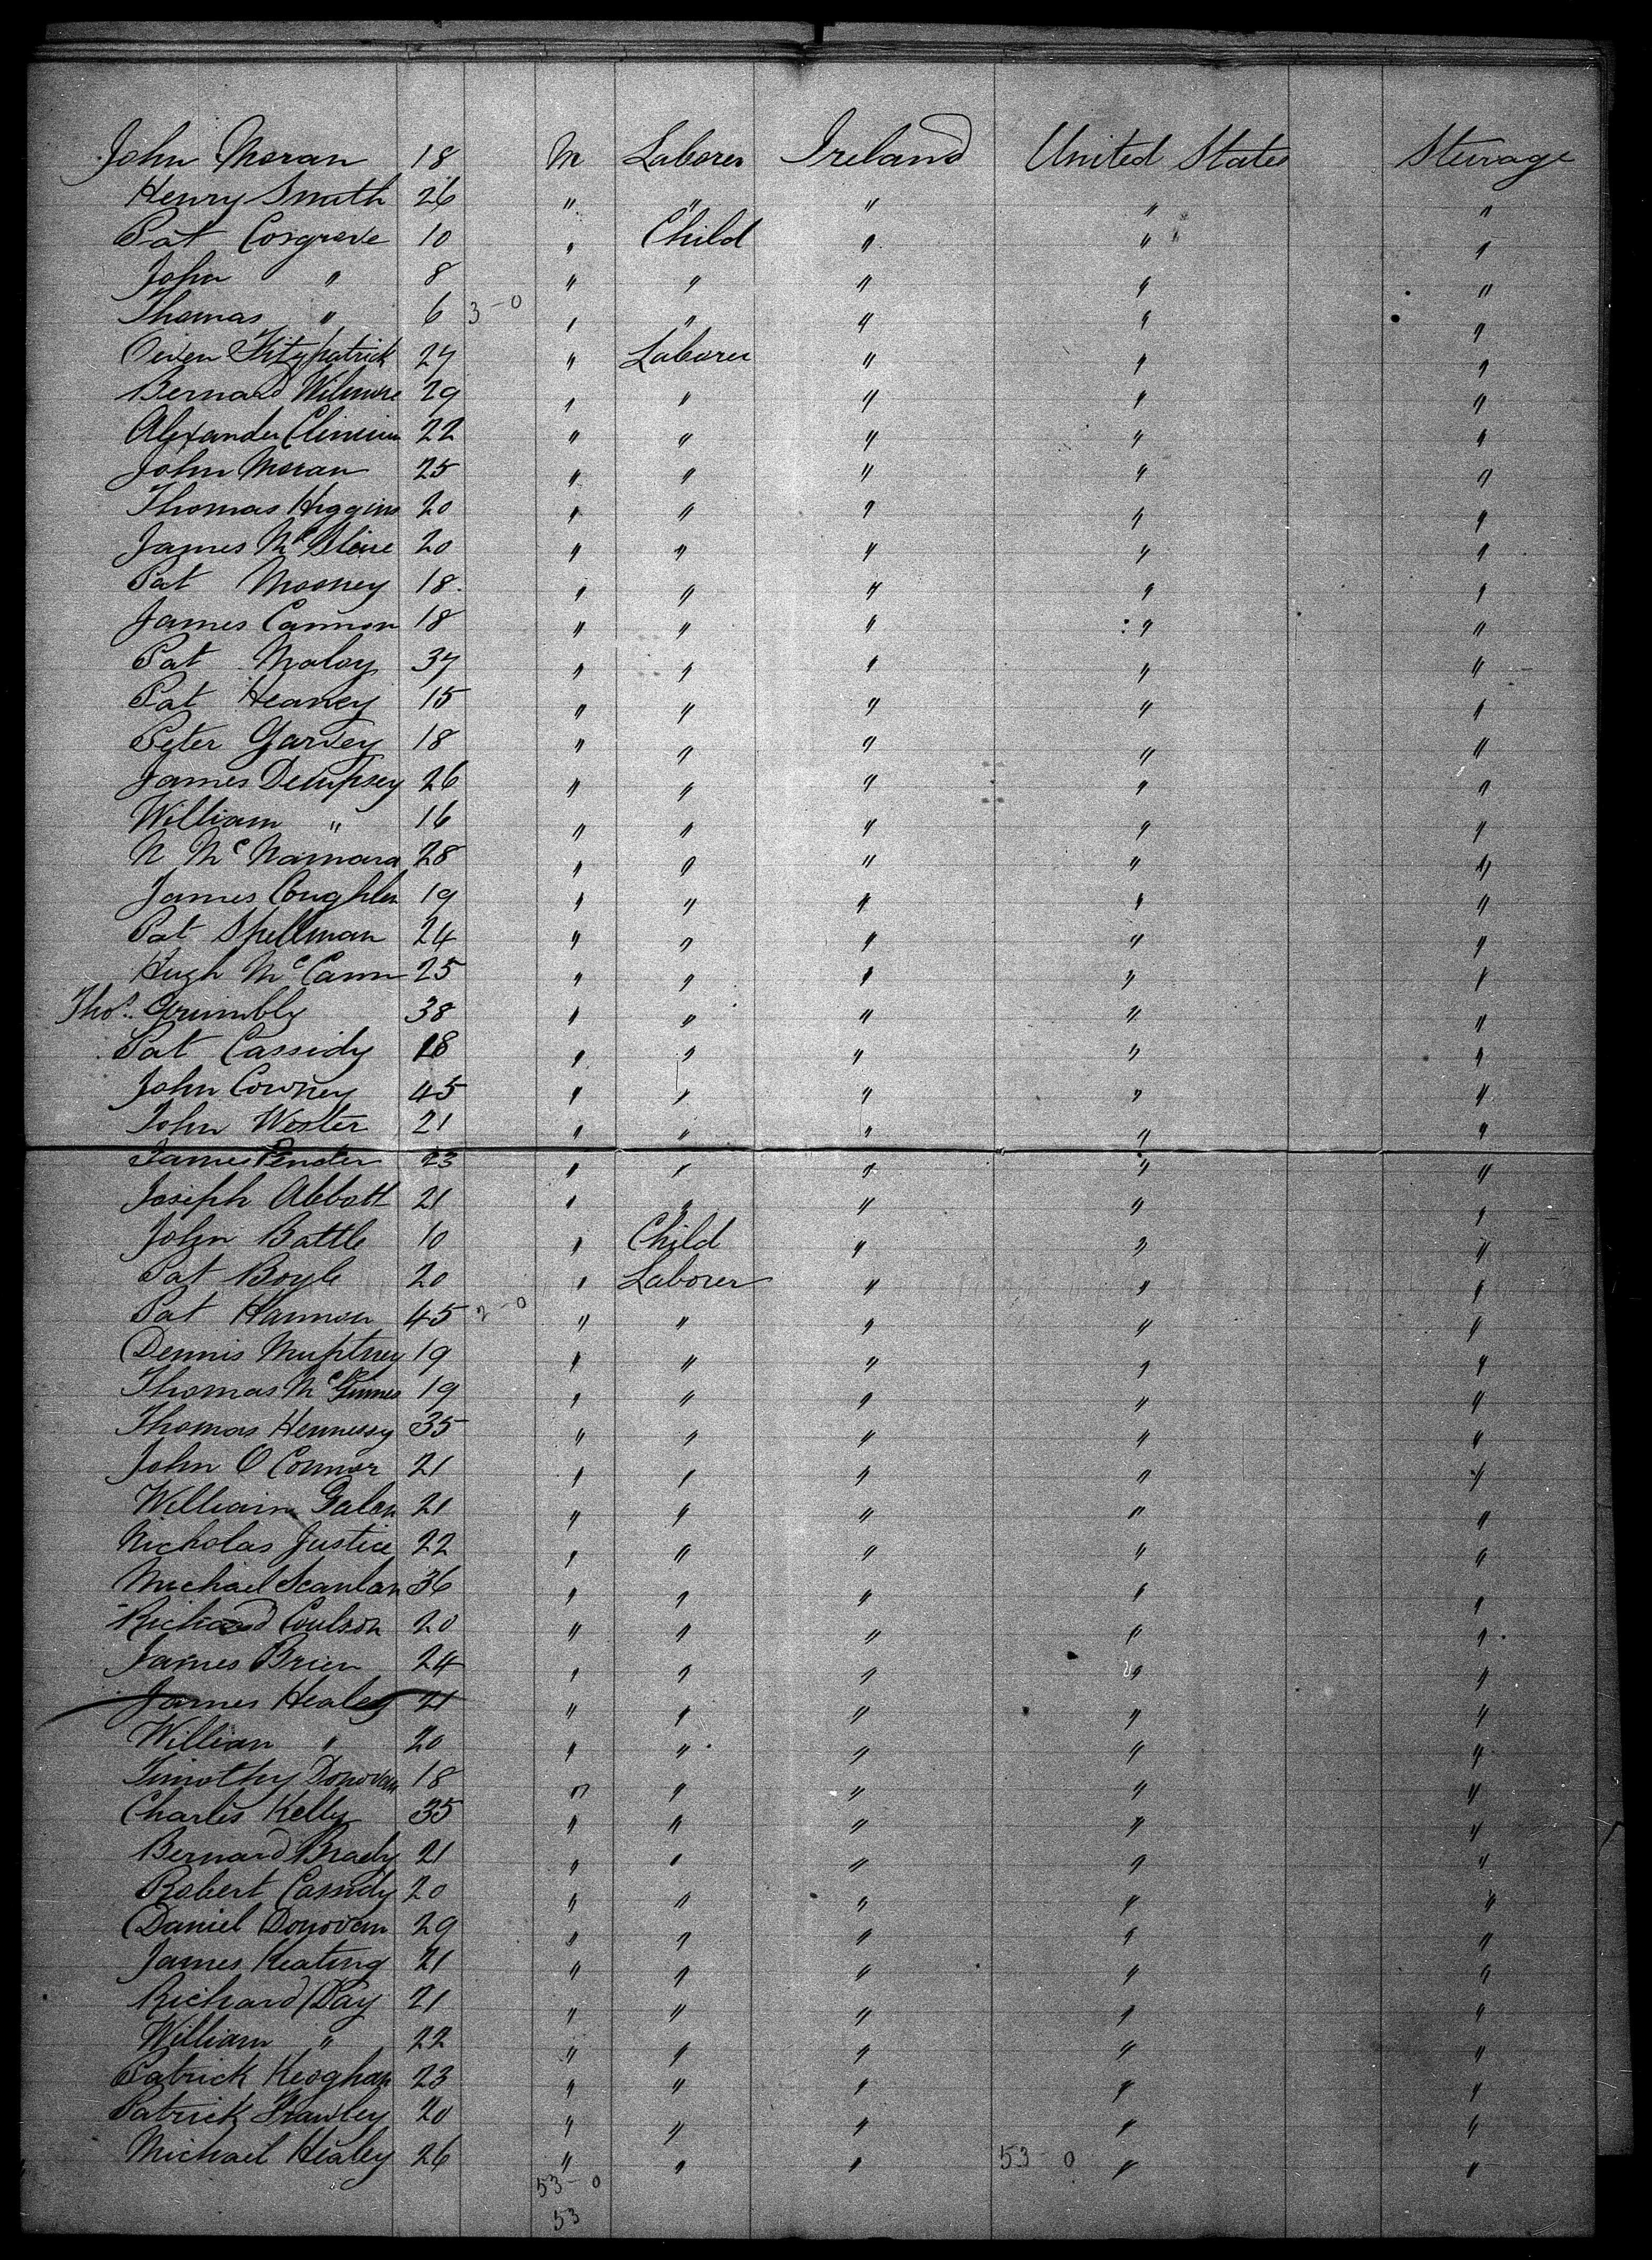 John Moran 18 M Laborer Ireland United States Steerage
Henry Smith 26 " " " " "
Pat Cosgrove 10 " Child " " "
John " 8 " " " " "
Thomas " 6 3-0 " " " " "
Owen Fitzpatrick 27 " Laborer " " "
Bernard Wilmore 29 " " " " "
Alexander 22 " " " " "
John Moran 25 " " " " "
Thomas Higgins 20 " " " " "
James 20 " " " " "
Pat Mooney 18 " " " " "
James Cannon 18 " " " " "
Pat Maloy 37 " " " " "
Pat Heaney 15 " " " " "
Peter Garvey 18 " " " " "
James Dempsey 26 " " " " "
William " 16 " " " " "
N McNamara 28 " " " " "
James Coughlen 19 " " " " "
Pat Spellman 24 " " " " "
Hugh McCann 25 " " " " "
Thos. Grumbly 38 " " " " "
Pat Cassidy 18 " " " " "
John Cowney 45 " " " " "
John Woster 21 " " " " "
James Pender 23 " " " " "
Joseph Abbott 21 " " " " "
John Battle 10 " Child " " "
Pat Boyle 20 " Laborer " " "
Pat Hannon 45 2-0 " " " " "
Dennis 19 " " " " "
Thomas McGinnes 19 " " " " "
Thomas Hennessy 35 " " " " "
John O Connor 21 " " " " "
William Galen 21 " " " " "
Nicholas Justice 22 " " " " "
Michael Scanlan 36 " " " " "
Richard Coulson 20 " " " " "
James Brien 24 " " " " "
James Healey 21 " " " " "
William " 20 " " " " "
Timothy Donovan 18 " " " " "
Charles Kelly 35 " " " " "
Bernard Brady 21 " " " " "
Robert Cassidy 20 " " " " "
Daniel Donovan 29 " " " " "
James Keating 21 " " " " "
Richard Day 21 " " " " "
William " 22 " " " " "
Patrick Keoghan 23 " " " " "
Patrick Frawley 20 " " " " "
Michael Healey 26 " " " 53-0 " "
53-0
53